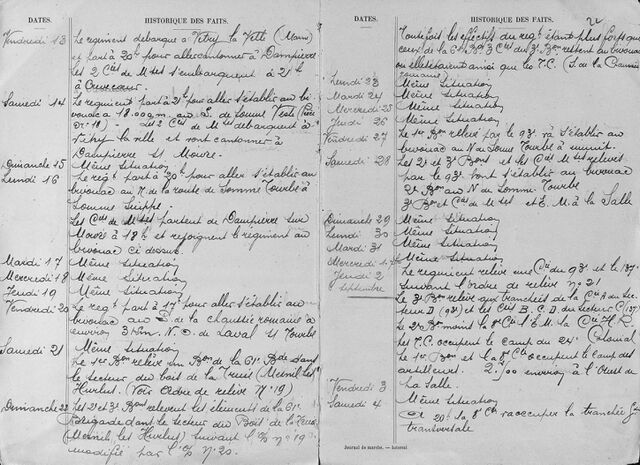 DATES. HISTORIQUE DES FAITS.
Vendredi 13 Le regiment debarque à Vitry la Ville (Marne)
et part à 20h pour aller cantonner à Dampierre
Les 2 Cies de Mses s'embarquent à 21h
à
Samedi 14 Le regiment part à 21h pour aller s'établir au bi
vouac à 1800 m. au S. de Somme
Nº 11) Les 2 Cies de Mses débarquent à
Vitry la ville et vont cantonner à
Dampierre s/ Moivre.
Dimanche 15 Même situation
Lundi 16 Le regt part à 20h pour aller s'établir au
bivouac au N. de la route de Somme Tourbe à
Somme Suippe.
Les Cies de Mses partent de Dampierre sur
Moivre à 18h et rejoignent le régiment au
bivouac ci dessus.
Mardi 17 Même situation
Mercredi 18 Même situation
Jeudi 19 Même situation
Vendredi 20 Le regt part à 17h pour aller s'établir au
bivouac au S. de la chaussée romaine à
environ 3 km. N.O. de Laval s/ Tourbe
Samedi 21 Même situation
Le 1er Bon relève un Bon de la 61e Bde dans
le secteur du bois de la Truie (Mesnil les
Hurlus). (Voir Ordre de relève Nº 19)
Dimanche 22 Les 2e et 3e Bons relevent les elements de la 61e
Brigade dans le secteur du Bois de la Truie
(Mesnil les Hurlus) suivant l'O/ nº 19
modifié par l'O/ Nº 20.
DATES. HISTORIQUE DES FAITS.
Toutefois les effectifs du regt étant plus forts que
ceux de la Bde, 3 Cies du 3e Bon restent au bivouac
ainsi que les T.C. (S. de la Chaussée
romaine)
Lundi 23 Même situation
Mardi 24 Même situation
Mercredi 25 Même situation
Jeudi 26 Même situation
Vendredi 27 Le 1er Bon relevé par le 93e va s'établir au
bivouac au N de Somme Tourbe à minuit.
Samedi 28 Les 2e et 3e Bons et les Cies de Mses relevés
par le 93e vont s'établir au bivouac
2e Bon au N de Somme Tourbe
3e Bon et Cies de Mses et E.M. à la Salle
Dimanche 29 Même situation
Lundi 30 Même situation
Mardi 31 Même situation
Mercredi 1er Même situation
Jeudi 2 Le regiment relève une Cie du 93e et le 137e
septembre suivant l'ordre de relève nº 21
Le 3e Bon relève aux tranchées de la Cie A du Sec
teur D (93e) et les Cies B. C. D. du secteur C (137e)
Le 2e Bon moins la 8e Cie l'E.M. la Cie H.R.
Les T.C. occupent le Camp du 24e Colonial
Le 1er Bon et la 8e Cie occupent le camp des
artilleurs. 2.500 environ à l'Ouest de
La Salle.
Vendredi 3 Même situation
Samedi 4 A 20h la 8e Cie va occuper la tranchée
transversale
Journal de marche. — Intercal.